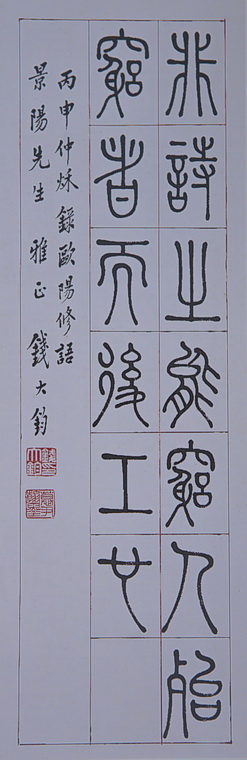 非詩之能窮人殆
窮者而後工也
丙申仲秋錄歐陽修語
景陽先生 雅正 錢大鈞